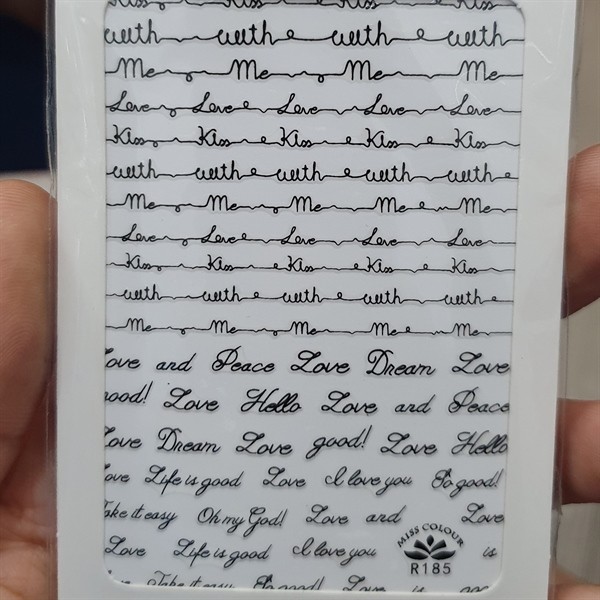 Kiss Kiss Kiss Kiss
with with with with
Me Me Me Me
Love Love Love Love Love
Kiss Kiss Kiss Kiss Kiss
with with with with with
Me Me Me Me Me
Love Love Love Love Love
Kiss Kiss Kiss Kiss Kiss
with with with with with
Me Me Me Me Me
Love and Peace Love Dream Love
good! Love Hello Love and Peace
Love Dream Love good! Love Hello
Love Life is good Love I love you So good!
Take it easy Oh my God! Love and Love
Love Life is good I love you is
MISS COLOUR
R185
Take it easy So good! Love is